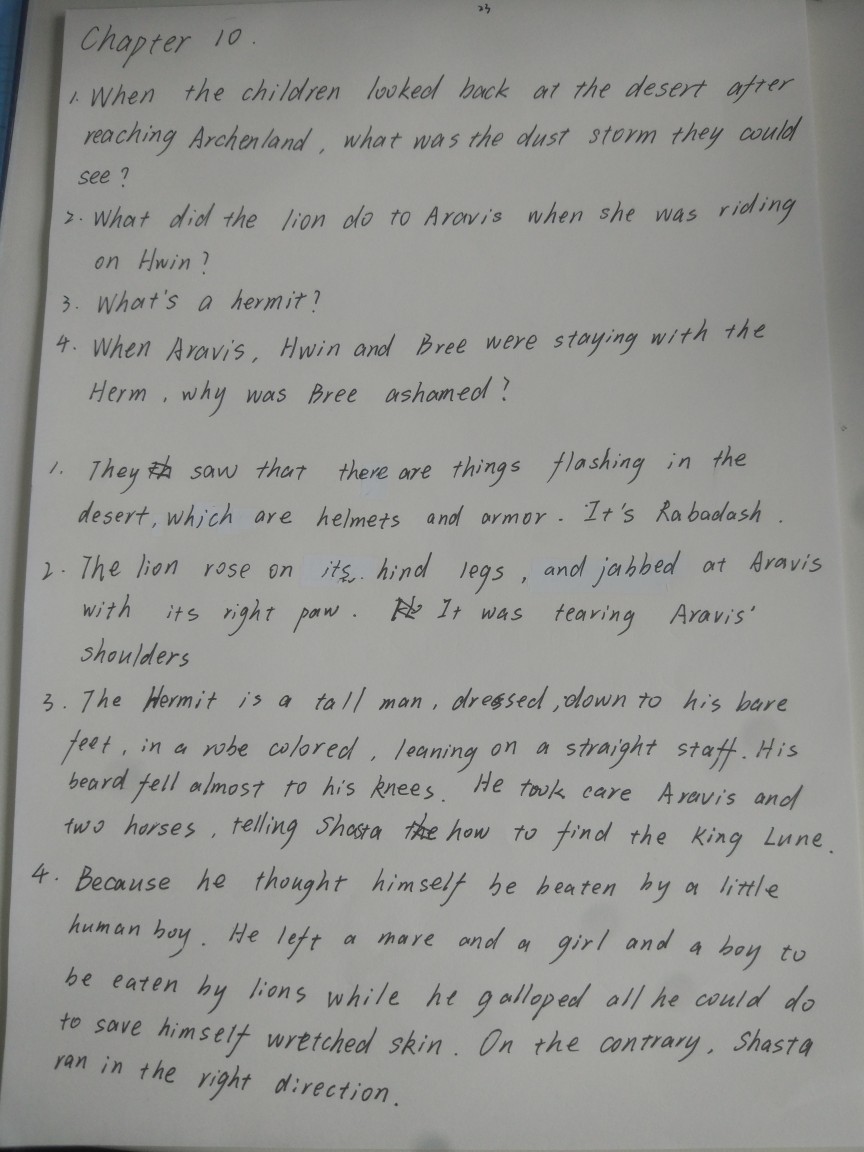 23
Chapter 10.
1. When the children looked back at the desert after
reaching Archenland, what was the dust storm they could
see?
2. What did the lion do to Aravis when she was riding
on Hwin?
3. What's a hermit?
4. When Aravis, Hwin and Bree were staying with the
Herm, why was Bree ashamed?
1. They saw that there are things flashing in the
desert, which are helmets and armor. It's Rabadash.
2. The lion rose on its hind legs, and jabbed at Aravis
with its right paw. It was tearing Aravis'
shoulders
3. The Hermit is a tall man, dressed, down to his bare
feet, in a robe colored, leaning on a straight staff. His
beard fell almost to his knees. He took care Aravis and
two horses, telling Shasta how to find the King Lune.
4. Because he thought himself be beaten by a little
human boy. He left a mare and a girl and a boy to
be eaten by lions while he galloped all he could do
to save himself wretched skin. On the contrary, Shasta
ran in the right direction.